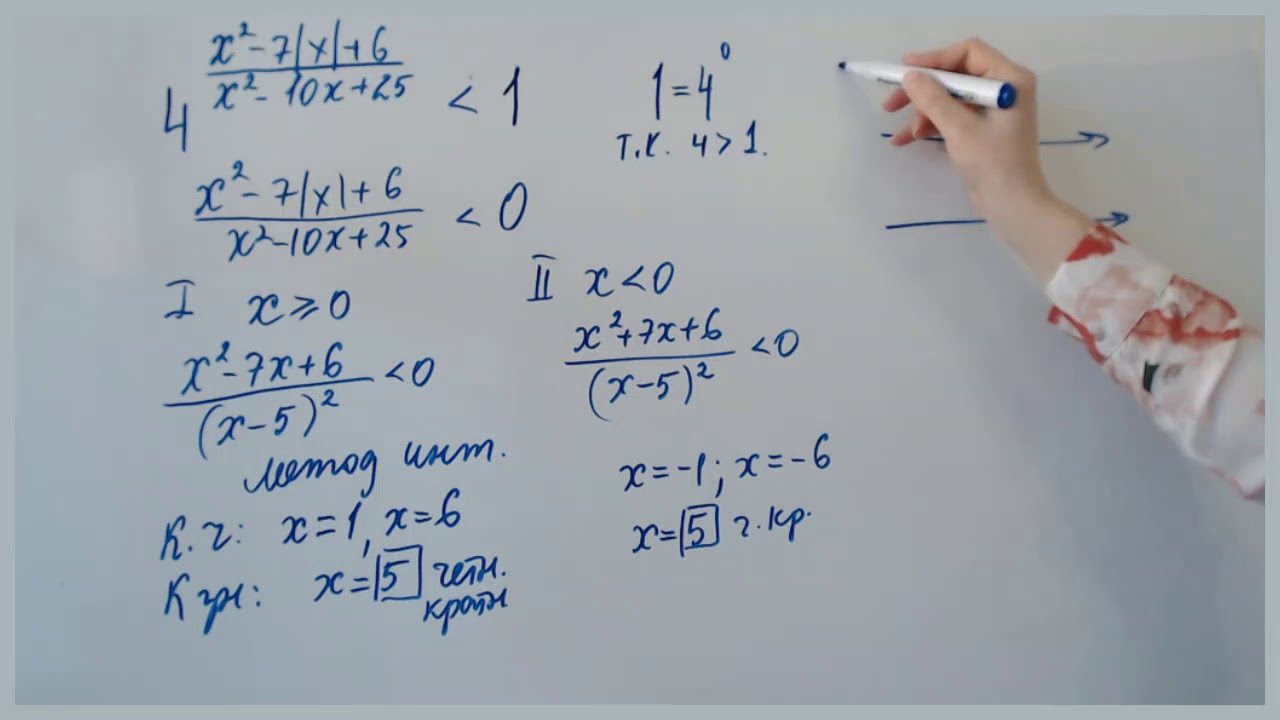 4^((x²-7|x|+6)/(x²-10x+25)) < 1
1=4⁰
т.к. 4>1.
(x²-7|x|+6)/(x²-10x+25) < 0
I x⩾0
(x²-7x+6)/(x-5)² <0
метод инт.
К.ч: x=1, x=6
К зн: x=5 четн.
кратн
II x<0
(x²+7x+6)/(x-5)² <0
x=-1; x=-6
x=5 ч.кр.